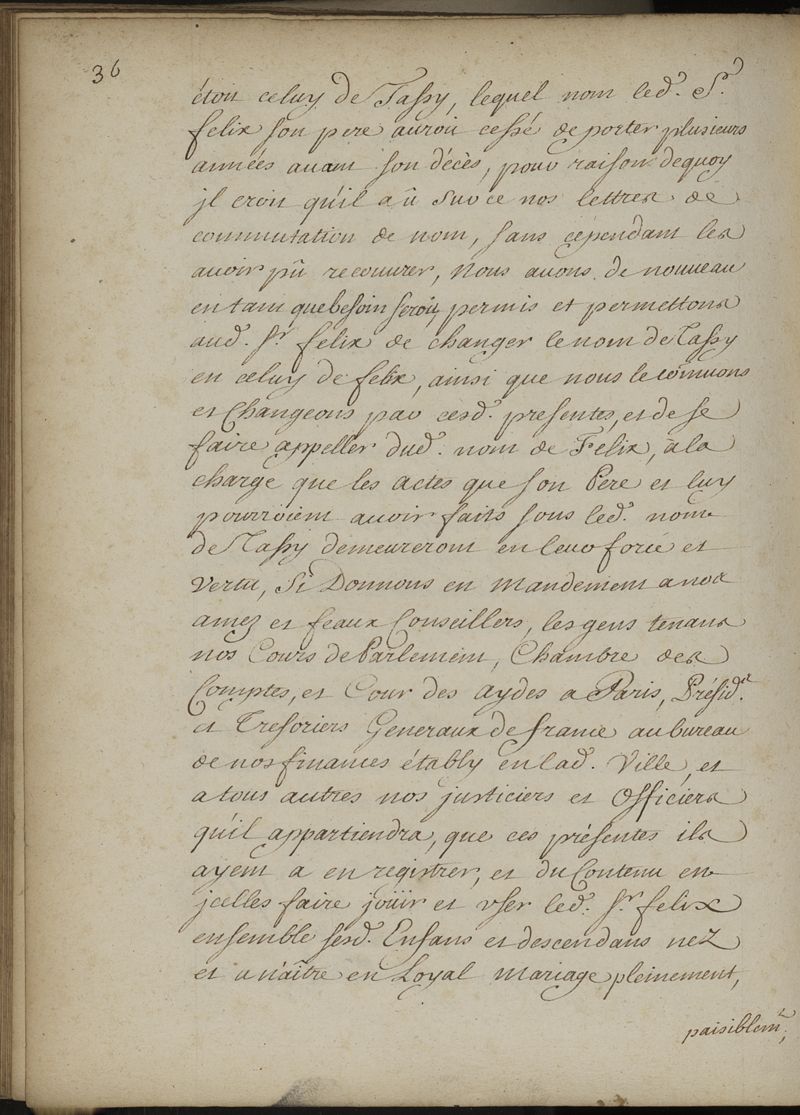 36
étoit celuy de Tassy, lequel nom led. Sr.
felix son pere auroit cessé de porter plusieurs
années avant son décès, pour raison dequoy
jl croit qu'il a û sur ce nos lettres de
commutation de nom, sans cependant les
avoir pû recouurer, Nous auons de nouueau
en tant que besoin seroit, permis et permettons
aud. Sr. felix de changer le nom de Tassy
en celuy de felix, ainsi que nous le com̃uons
et Changeons par cesd. presentes, et de se
faire appeller dud. nom de Felix, à la
charge que les actes que son Pere et luy
pourroient auoir faits sous led. nom
de Tassy demeureront en leur force et
vertu, Si Donnons en Mandement a nos
amez et feaux Conseillers, les gens tenans
nos Cours de Parlement, Chambre des
Comptes, et Cour des aydes a Paris, Présid.t
et Tresoriers Generaux de france au bureau
de nos finances étably en lad. Ville, et
a tous autres nos justiciers et Officiers
qu'il appartiendra, que ces présentes ils
ayent a enregistrer, et du Contenu en
jcelles faire joüir et vser led. Sr. felix
ensemble sesd. Enfans et descendans nez
et a naître en Loyal mariage pleinement,
paisiblem.t,